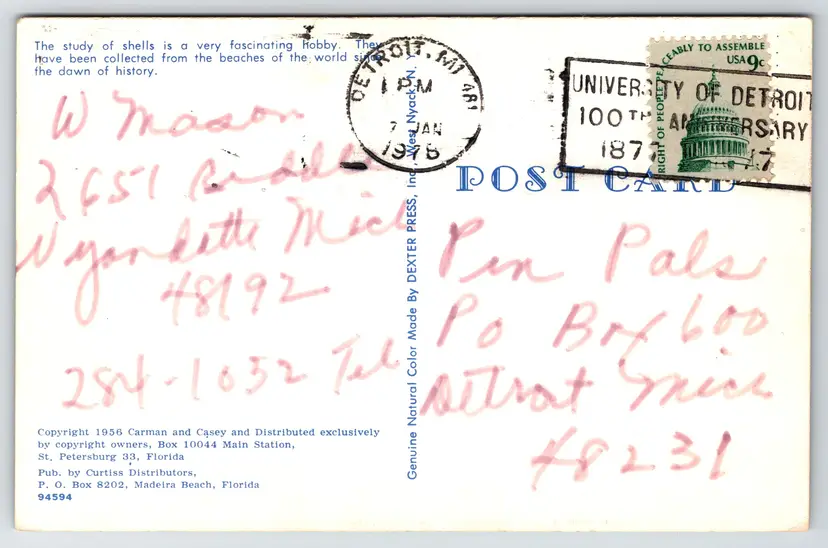 The study of shells is a very fascinating hobby. They
have been collected from the beaches of the world since
the dawn of history.
W Mason
2651
Wyandotte Mich
48192
284-1052 Tel
Copyright 1956 Carman and Casey and Distributed exclusively
by copyright owners, Box 10044 Main Station,
St. Petersburg 33, Florida
Pub. by Curtiss Distributors,
P. O. Box 8202, Madeira Beach, Florida
94594
Genuine Natural Color Made By DEXTER PRESS, Inc. West Nyack, N. Y.
DETROIT, MI 481
1 PM
7 JAN
1978
UNIVERSITY OF DETROIT
100TH ANNIVERSARY
187 77
RIGHT OF PEOPLE PEACEABLY TO ASSEMBLE
USA 9c
POST CARD
Pen Pals
Po Box 600
Detroit Mich
48231